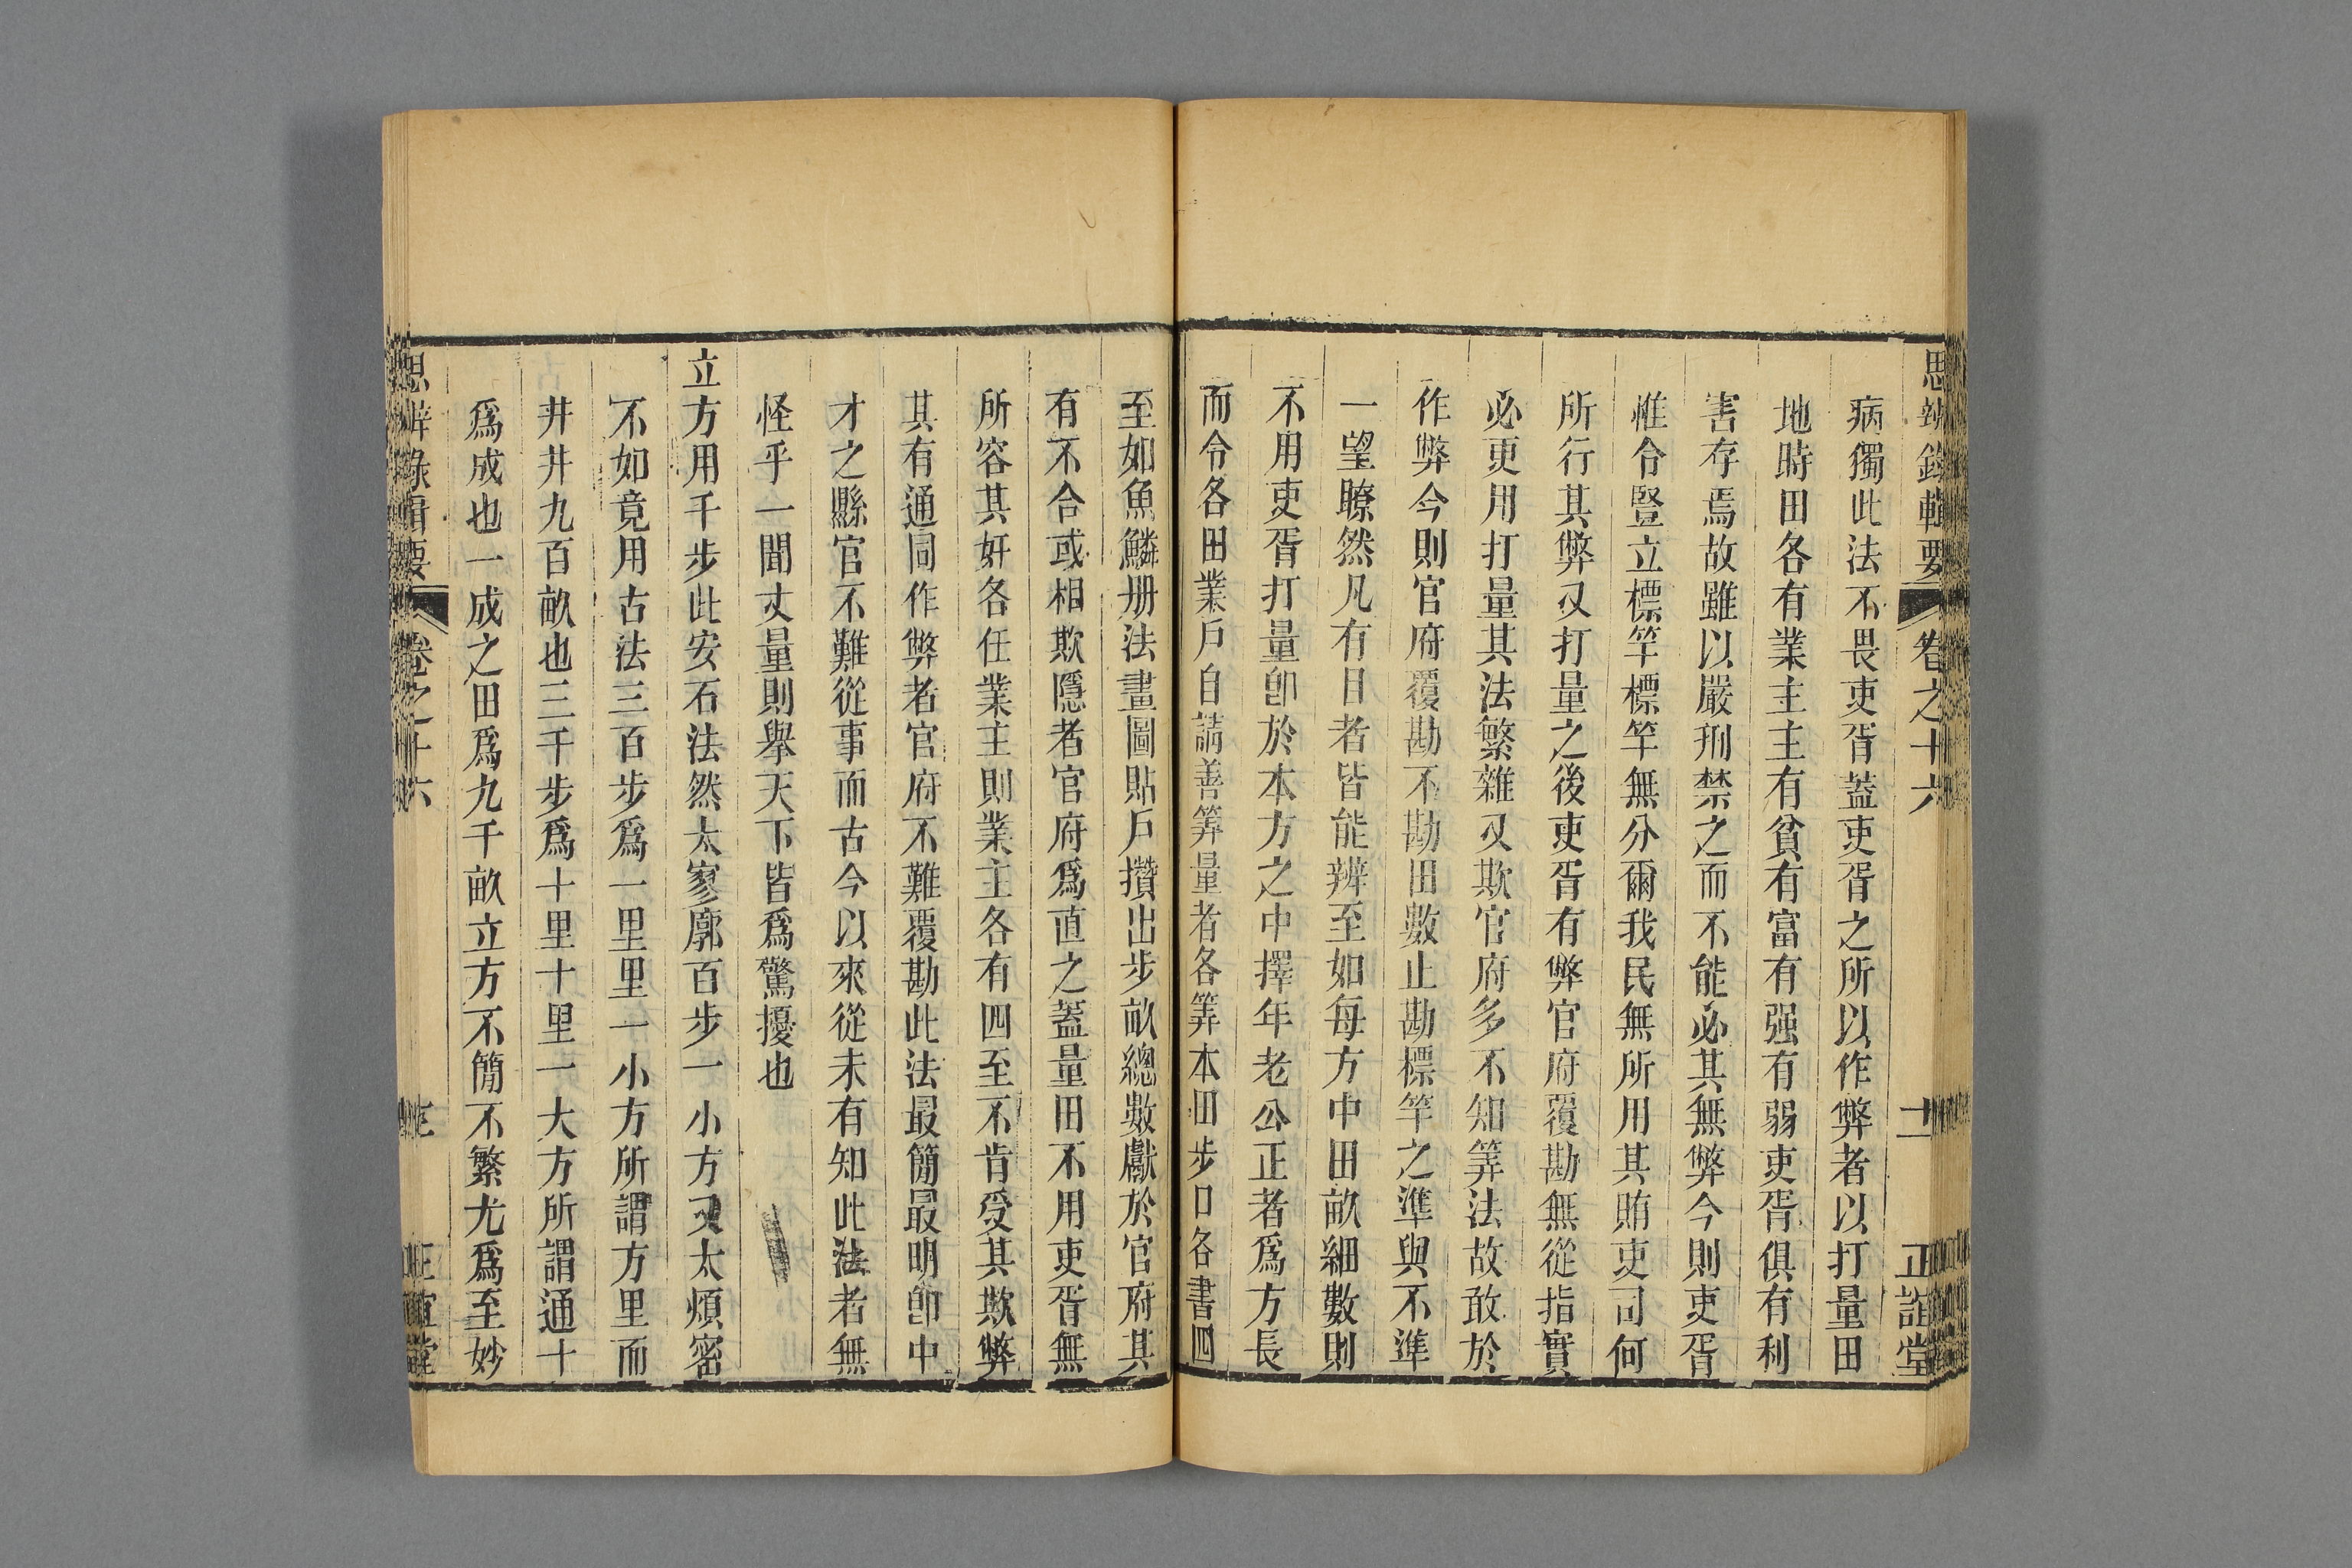 思辨錄輯要 卷之十六 十二 正誼堂
病獨此法不畏吏胥蓋吏胥之所以作弊者以打量田
地時田各有業主主有貧有富有强有弱吏胥俱有利
害存焉故雖以嚴刑禁之而不能必其無弊今則吏胥
惟令豎立標竿標竿無分爾我民無所用其賄吏司何
所行其弊又打量之後吏胥有弊官府覆勘無從指實
必更用打量其法繁雜又欺官府多不知筭法故敢於
作弊今則官府覆勘不勘田數止勘標竿之準與不準
一望瞭然凡有目者皆能辨至如每方中田畝細數則
不用吏胥打量卽於本方之中擇年老公正者爲方長
而令各田業戶自請善筭量者各筭本田步口各書四
至如魚鱗册法畫圖貼戶攢出步畝總數獻於官府其
有不合或相欺隱者官府爲直之蓋量田不用吏胥無
所容其奸各任業主則業主各有四至不肯受其欺弊
其有通同作弊者官府不難覆勘此法最簡最明卽中
才之縣官不難從事而古今以來從未有知此法者無
怪乎一聞丈量則舉天下皆爲驚擾也
立方用千步此安石法然太寥廓百步一小方又太煩密
不如竟用古法三百步爲一里里一小方所謂方里而
井井九百畝也三千步爲十里十里一大方所謂通十
爲成也一成之田爲九千畝立方不簡不繁尤爲至妙
思辨錄輯要 卷之十六 正誼堂